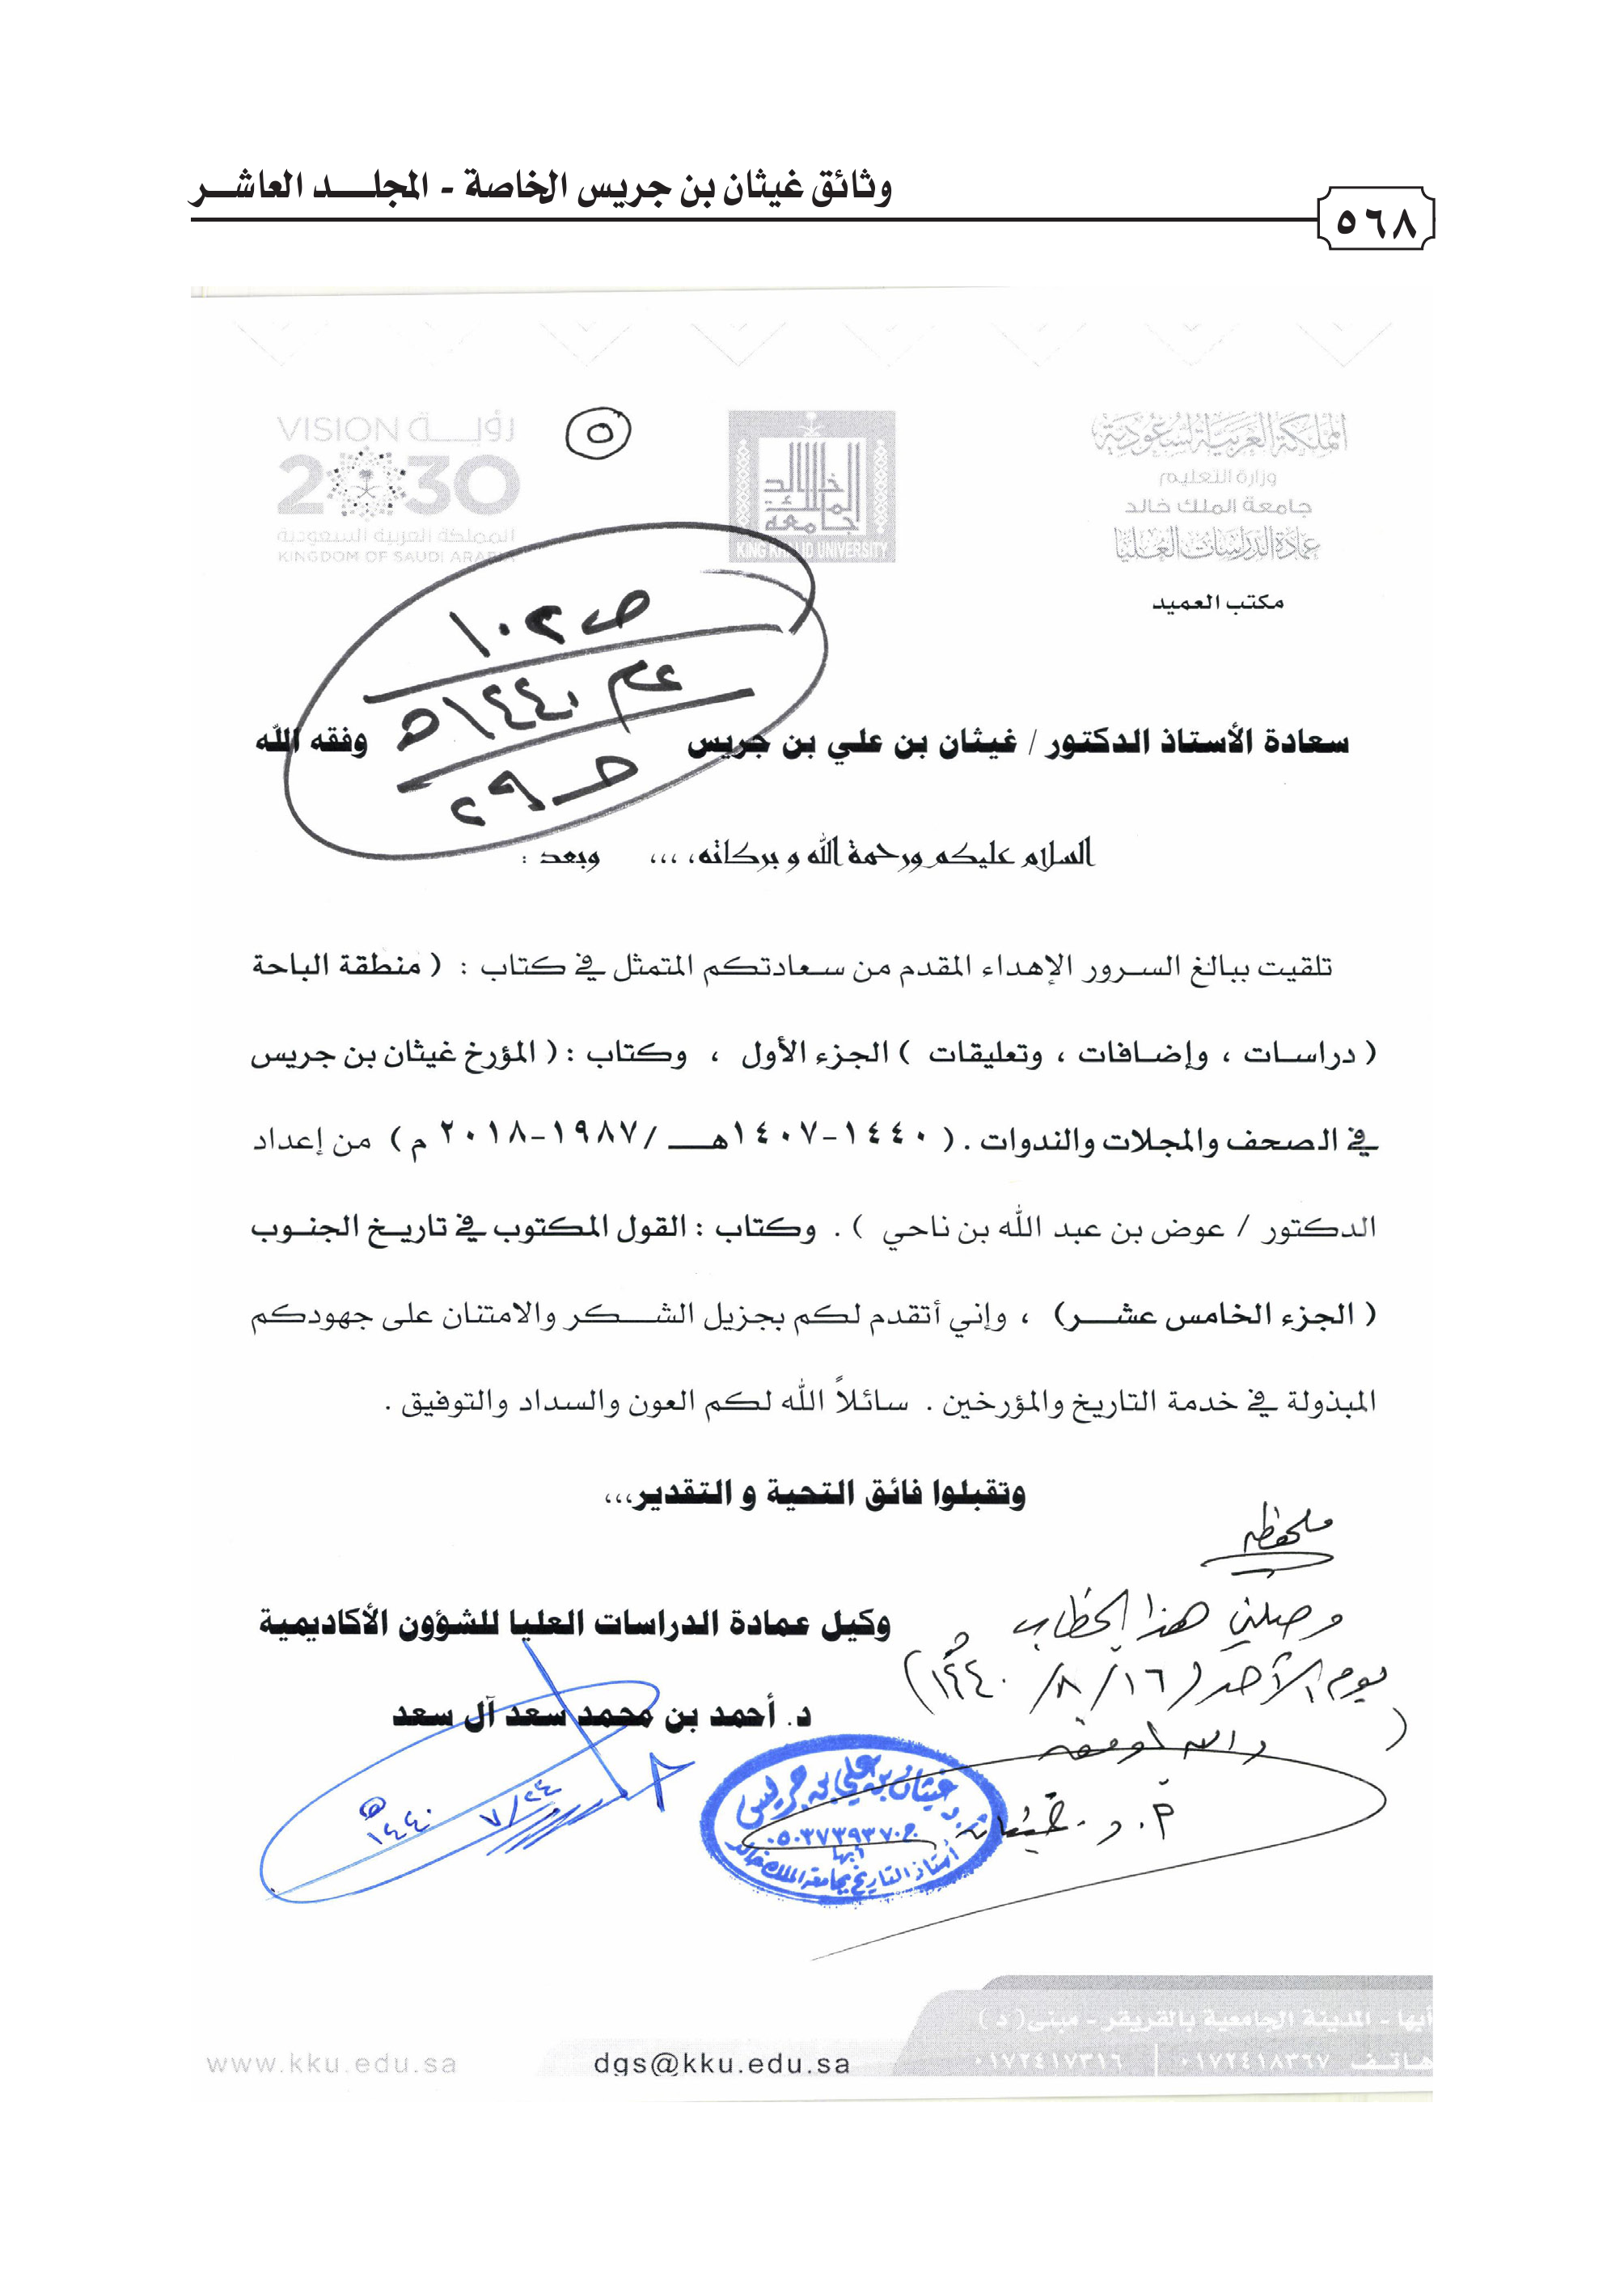 وثائق غيثان بن جريس الخاصة - المجلــــد العاشــر
٥٦٨
المملكة العربية السعودية
وزارة التعليم
جامعة الملك خالد
عمادة الدراسات العليا
مكتب العميد
جامعة الملك خالد
KING KHALID UNIVERSITY
٥
VISION رؤيـــة
2030
المملكة العربية السعودية
KINGDOM OF SAUDI ARABIA
ص ١٠٢
عام ١٤٤٠هـ
حـ ٢٩
سعادة الأستاذ الدكتور / غيثان بن علي بن جريس وفقه الله
السلام عليكم ورحمة الله و بركاته، ،،، وبعد :
تلقيت ببالغ السرور الإهداء المقدم من سعادتكم المتمثل في كتاب : ( منطقة الباحة
( دراسات ، وإضافات ، وتعليقات ) الجزء الأول ، وكتاب : ( المؤرخ غيثان بن جريس
في الصحف والمجلات والندوات . ( ١٤٤٠-١٤٠٧هـــ /١٩٨٧-٢٠١٨ م ) من إعداد
الدكتور / عوض بن عبد الله بن ناحي ) . وكتاب : القول المكتوب في تاريخ الجنوب
( الجزء الخامس عشـــر ) ، وإني أتقدم لكم بجزيل الشـــكر والامتنان على جهودكم
المبذولة في خدمة التاريخ والمؤرخين . سائلاً الله لكم العون والسداد والتوفيق .
وتقبلوا فائق التحية و التقدير،،،
وكيل عمادة الدراسات العليا للشؤون الأكاديمية
د. أحمد بن محمد سعد آل سعد
٧/٢٤
١٤٤٠هـ
ملحوظة
وصلني هذا الخطاب
يوم الأحد (١٦/ ٨/ ١٤٤٠هـ)
والله الموفق
أ. د. غيثان
أ.د غيثان بن علي بن جريس
ج ٠٥٠٣٧٣٩٣٧٠
أبها
أستاذ التاريخ بجامعة الملك خالد
أبها - المدينة الجامعية بالقريقر - مبنى ( د )
هاتف ٠١٧٢٤١٨٣٦٧ | ٠١٧٢٤١٧٣١٦
dgs@kku.edu.sa
www.kku.edu.sa